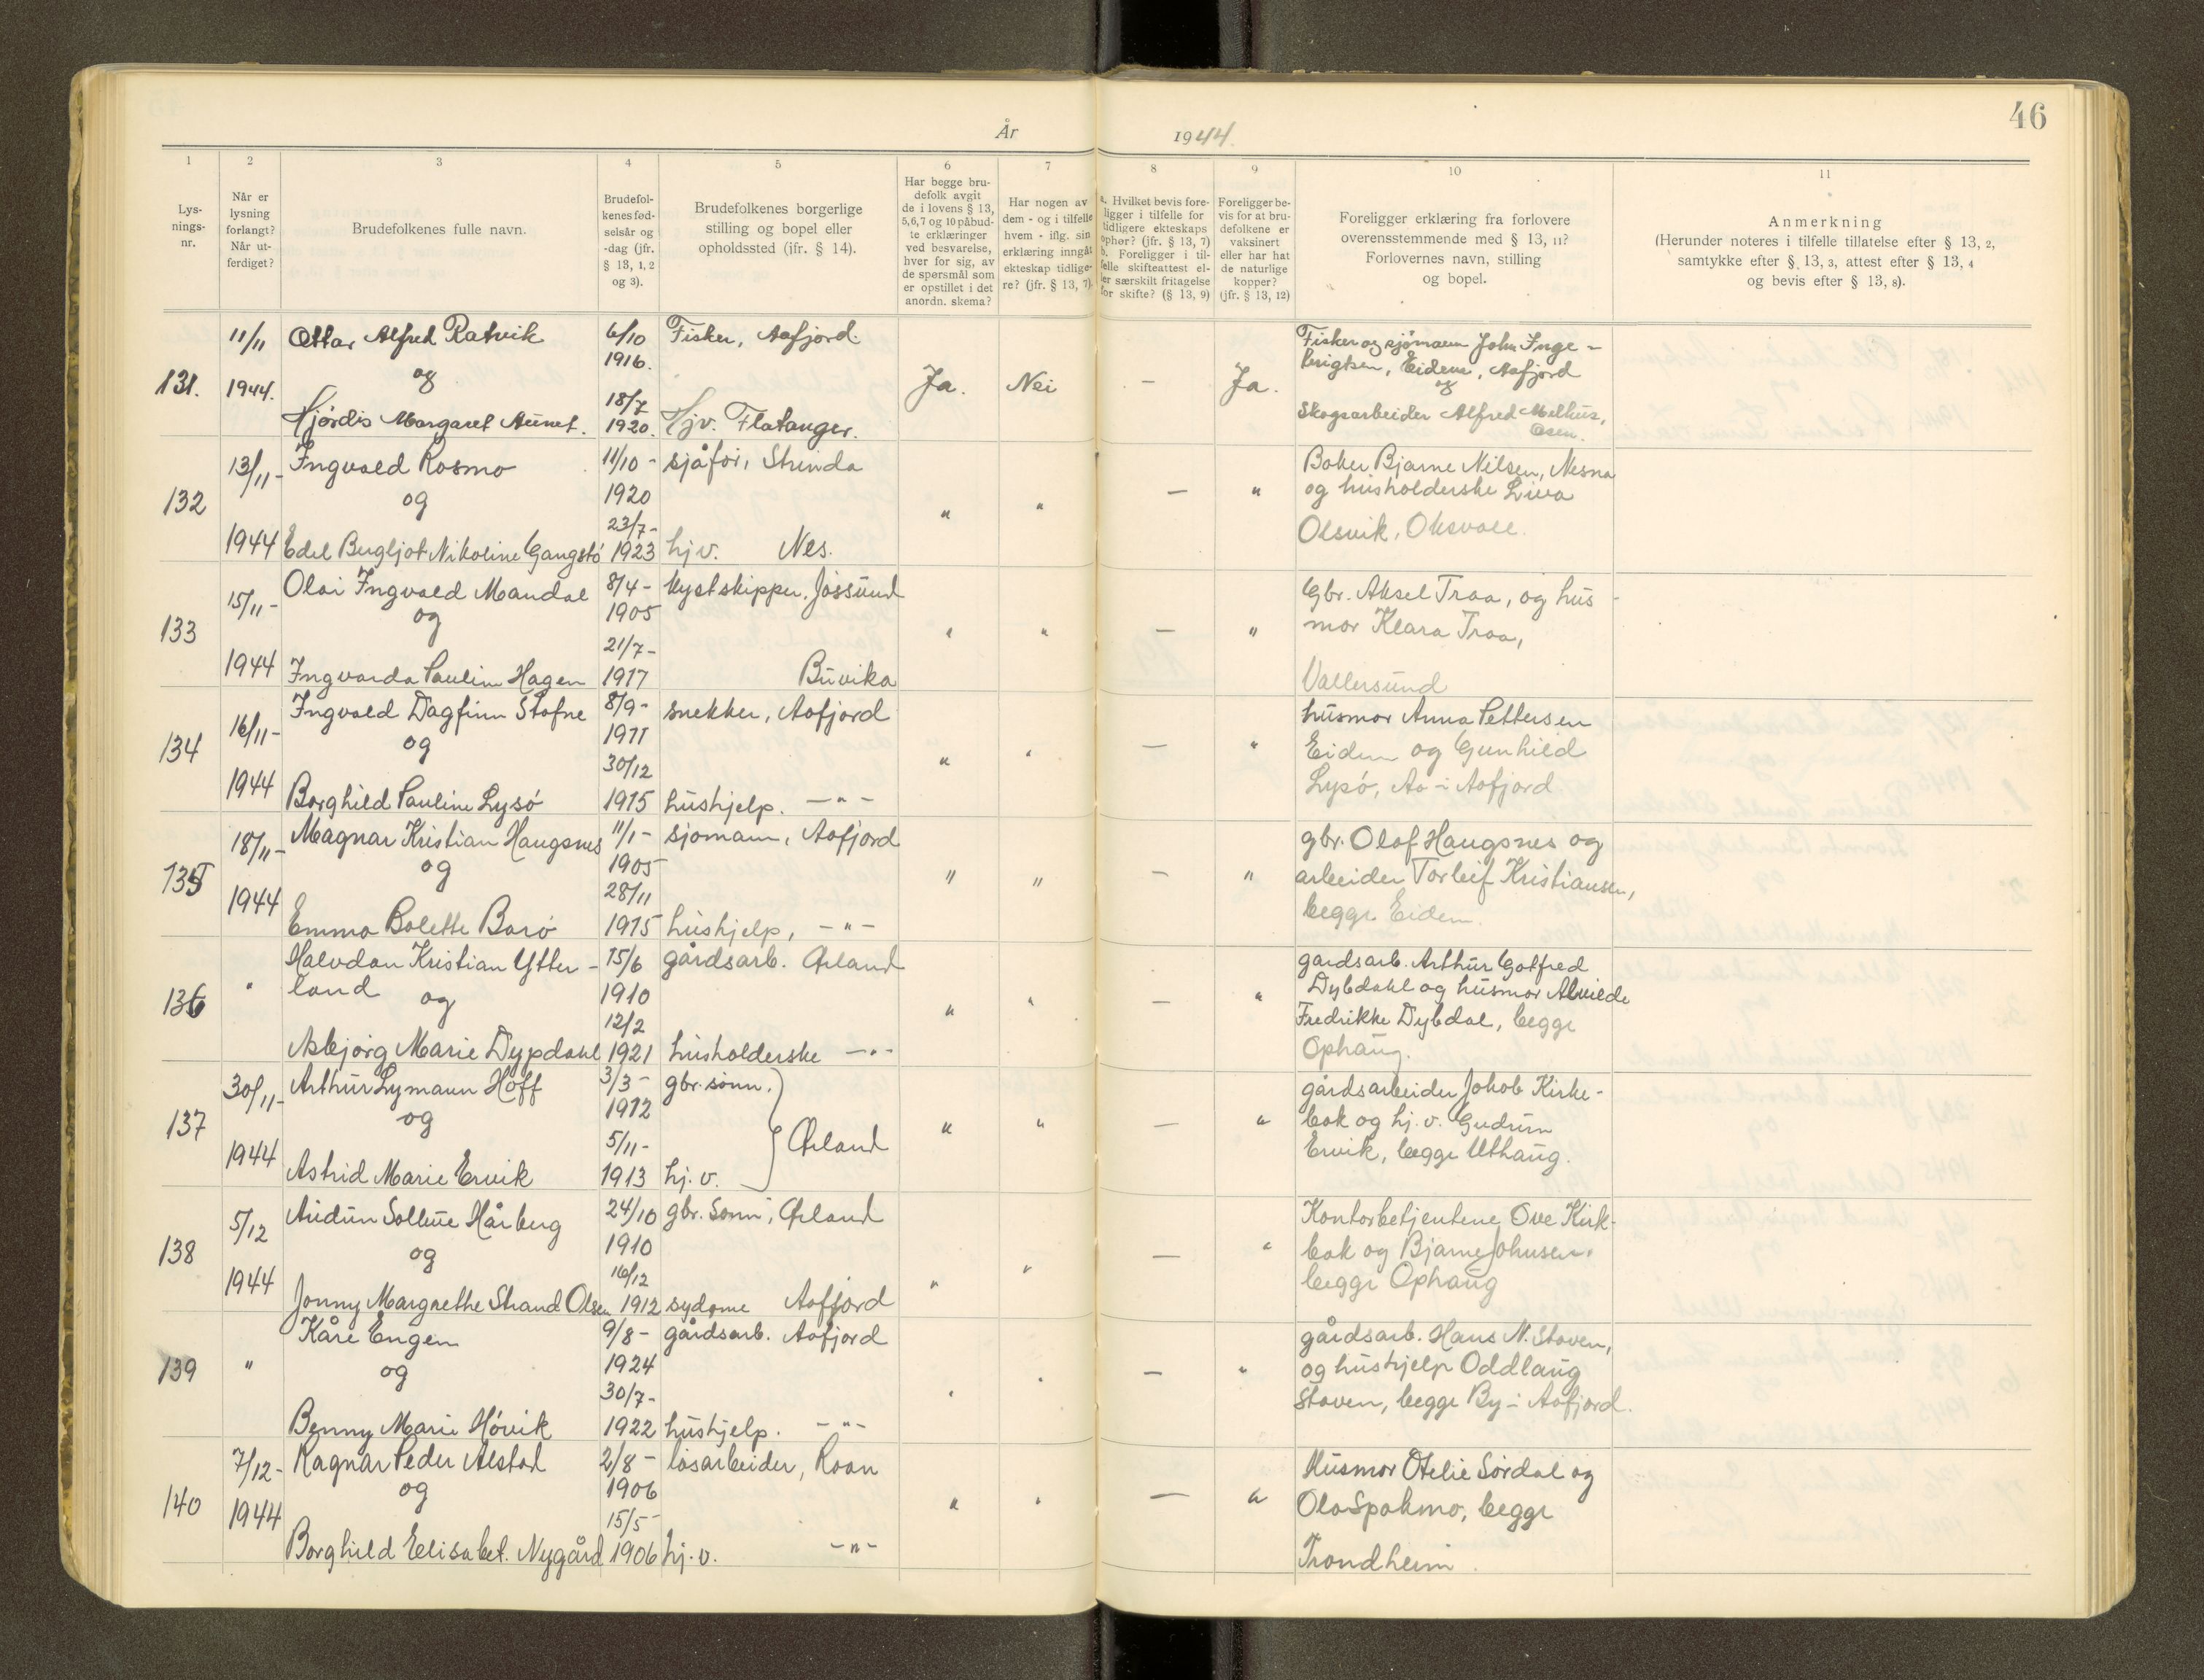 46
År 1944.
1 2 3 4 5 6 7 8 9 10 11
Lys-
nings-
nr.
Når er
lysning
forlangt?
Når ut-
ferdiget?
Brudefolkenes fulle navn.
Brudefol-
kenes fød-
selsår og
-dag (jfr.
§ 13, 1, 2
og 3).
Brudefolkenes borgerlige
stilling og bopel eller
opholdssted (jfr. § 14).
Har begge bru-
defolk avgit
de i lovens § 13,
5,6,7 og 10 påbud-
te erklæringer
ved besvarelse,
hver for sig, av
de spørsmål som
er opstillet i det
anordn. skema?
Har nogen av
dem - og i tilfelle
hvem - iflg. sin
erklæring inngåt
ekteskap tidlige-
re? (jfr. § 13, 7).
a. Hvilket bevis fore-
ligger i tilfelle for
tidligere ekteskaps
ophør? (jfr. § 13, 7)
b. Foreligger i til-
felle skifteattest el-
ler særskilt fritagelse
for skifte? (§ 13, 9)
Foreligger be-
vis for at bru-
defolkene er
vaksinert
eller har hat
de naturlige
kopper?
(jfr. § 13, 12)
Foreligger erklæring fra forlovere
overensstemmende med § 13, 11?
Forlovernes navn, stilling
og bopel.
Anmerkning
(Herunder noteres i tilfelle tillatelse efter § 13, 2,
samtykke efter § 13, 3, attest efter § 13, 4
og bevis efter § 13, 8).
131.
11/11
1944.
Ottar Alfred Ratvik
og
Hjørdis Margaret Aunet.
6/10
1916.
18/7
1920.
Fisker, Aafjord.
Hjv. Flatanger.
Ja.
Nei
—
Ja.
Fisker og sjømann John Inge-
brigtsen, Eidem, Aafjord
og
Skogsarbeider Alfred Melhus,
Osen.
132
13/11-
1944
Ingvald Rosmo
og
Edel Bergljot Nikoline Gangstø
11/10-
1920
23/7-
1923
sjåfør, Strinda
hjv. Nes.
"
"
—
"
Baker Bjarne Nilsen, Nesna
og husholderske Liva
Olsvik, Oksvoll.
133
15/11-
1944
Olai Ingvald Mandal
og
Ingvarda Pauline Hagen
8/4-
1905
21/7-
1917
kystskipper, Jøssund
Buvika
"
"
—
"
Gbr. Aksel Traa, og hus-
mor Klara Traa,
Vallersund
134
16/11-
1944
Ingvald Dagfinn Stofne
og
Borghild Pauline Lysø
8/9-
1911
30/12
1915
snekker, Aafjord
hushjelp. —"—
"
"
—
"
husmor Anna Pettersen
Eidem og Gunhild
Lysø, Aa i Aafjord
135
18/11-
1944
Magnar Kristian Haugsnes
og
Emma Bolette Barø
11/1-
1905
28/11
1915
sjømann, Aafjord
hushjelp, —"—
"
"
—
"
gbr. Olaf Haugsnes og
arbeider Torleif Kristiansen,
begge Eidem.
136
"
Halvdan Kristian Ytter-
land og
Asbjørg Marie Dypdahl
15/6
1910
12/2
1921
gårdsarb. Ørland
husholderske —"—
"
"
—
"
gardsarb. Arthur Gotfred
Dybdahl og husmor Alvilde
Fredrikke Dybdal, begge
Ophaug.
137
30/11-
1944
Arthur Lymann Hoff
og
Astrid Marie Ervik
3/3-
1912
5/11-
1913
gbr. sønn.
Ørland
hj. v.
"
"
—
"
gårdsarbeider Jakob Kirke-
bak og hj. v. Gudrun
Ervik, begge Uthaug.
138
5/12
1944
Audun Sollie Hårberg
og
Jonny Margrethe Strand Olsen
24/10
1910
16/12
1912
gbr. sønn, Ørland
sydame Aafjord
"
"
—
"
Kontorbetjentene Ove Kirk-
bak og Bjarne Johnsen.
begge Ophaug
139
"
Kåre Engen
og
Benny Marie Høvik
9/8-
1924
30/7-
1922
gårdsarb. Aafjord
hushjelp. —"—
"
"
—
"
gårdsarb. Hans N. Staven,
og hushjelp Oddlaug
Staven, begge By i Aafjord.
140
7/12-
1944
Ragnar Peder Alstad
og
Borghild Elisabet. Nygård
2/8-
1906
15/5-
1906
løsarbeider, Roan
hj. v. —"—
"
"
—
"
Husmor Otelie Sørdal og
Ola Spakmo, begge
Trondheim.